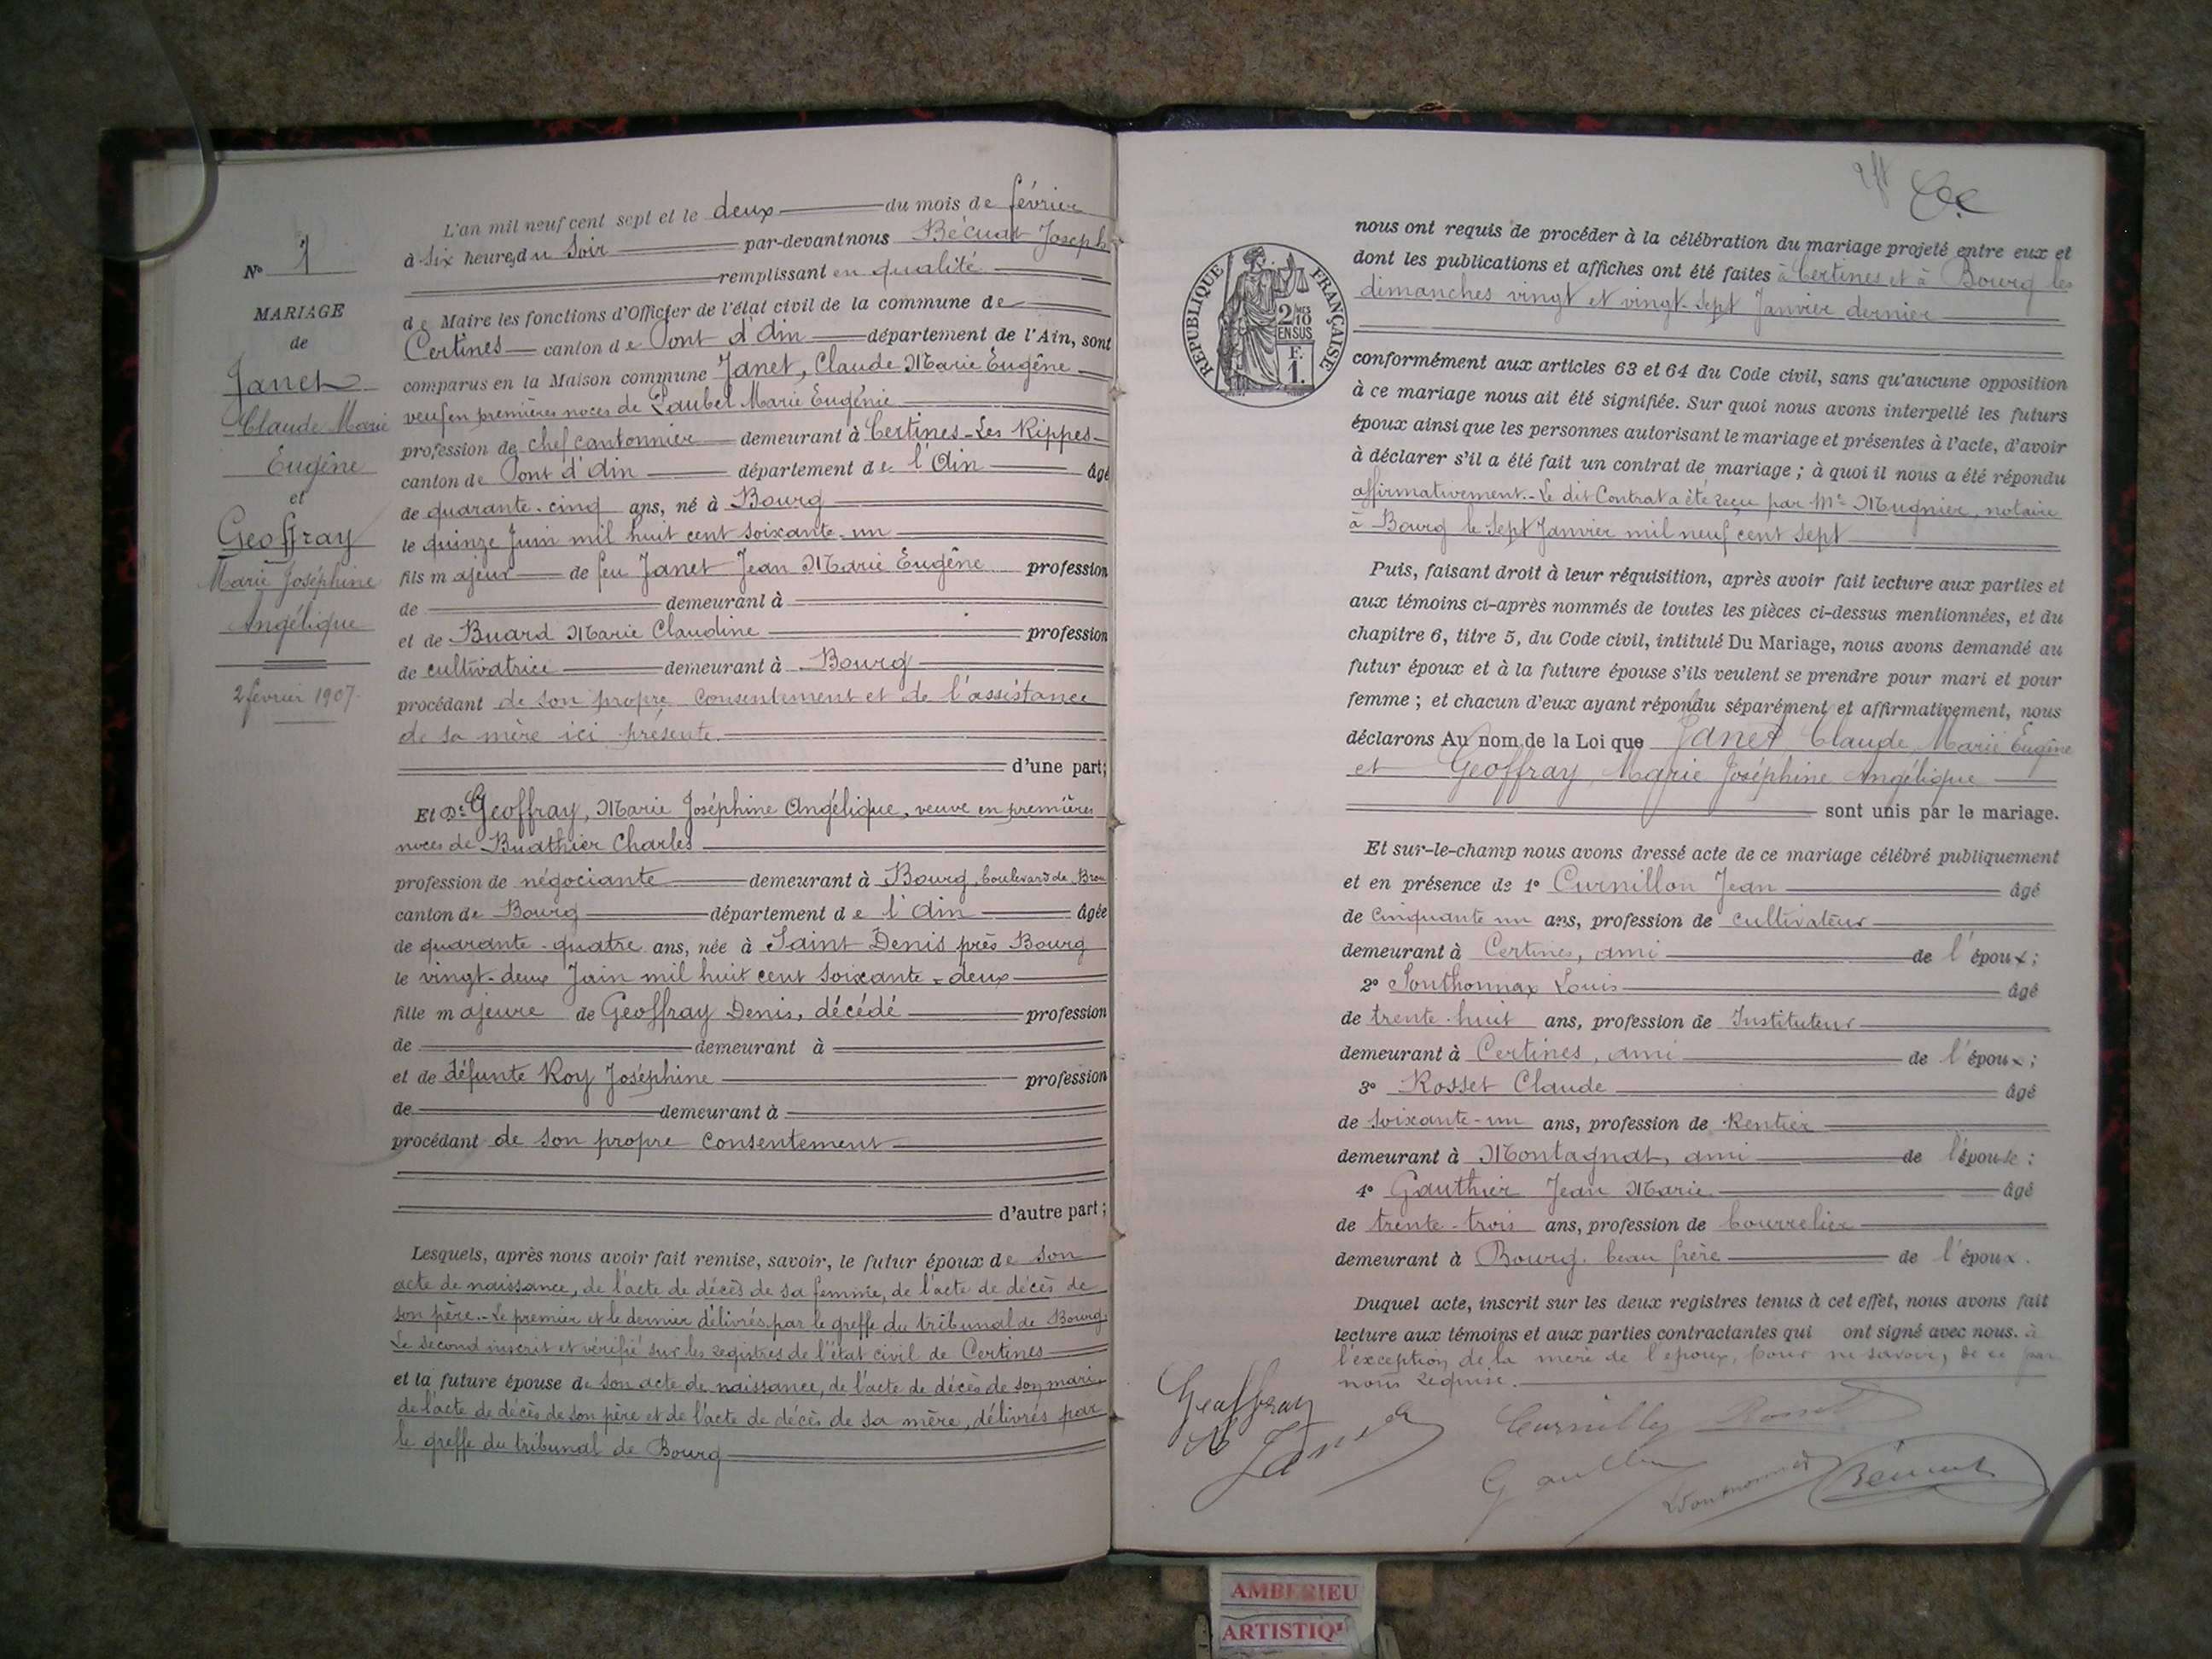 N° 1
MARIAGE
de
Janet
Claude Marie
Eugène
et
Geoffray
Marie Joséphine
Angélique
2 février 1907.
L'an mil neuf cent sept et le deux du mois de février
à six heures du soir par-devant nous Bécuat Joseph
remplissant en qualité
de Maire les fonctions d'Officier de l'état civil de la commune de
Certines canton de Pont d'Ain département de l'Ain, sont
comparus en la Maison commune Janet, Claude Marie Eugène
veuf en premières noces de Laubel Marie Eugénie
profession de chef cantonnier demeurant à Certines - Les Rippes
canton de Pont d'Ain département de l'Ain âgé
de quarante-cinq ans, né à Bourg
le quinze Juin mil huit cent soixante-un
fils majeur de feu Janet Jean Marie Eugène profession
de demeurant à
et de Buard Marie Claudine profession
de cultivatrice demeurant à Bourg
procédant de son propre consentement et de l'assistance
de sa mère ici présente.
d'une part;
Et De Geoffray, Marie Joséphine Angélique, veuve en premières
noces de Buathier Charles
profession de négociante demeurant à Bourg, boulevard de Brou
canton de Bourg département de l'Ain âgée
de quarante-quatre ans, née à Saint Denis près Bourg
le vingt-deux Juin mil huit cent soixante-deux
fille majeure de Geoffray Denis, décédé profession
de demeurant à
et de défunte Roy Joséphine profession
de demeurant à
procédant de son propre consentement
d'autre part;
Lesquels, après nous avoir fait remise, savoir, le futur époux de son
acte de naissance, de l'acte de décès de sa femme, de l'acte de décès de
son père.- Le premier et le dernier délivrés par le greffe du tribunal de Bourg.
Le second inscrit et vérifié sur les registres de l'état civil de Certines
et la future épouse de son acte de naissance, de l'acte de décès de son mari
de l'acte de décès de son père et de l'acte de décès de sa mère, délivrés par
le greffe du tribunal de Bourg
RÉPUBLIQUE FRANÇAISE
2 MES
10
EN SUS
F.
1.
nous ont requis de procéder à la célébration du mariage projeté entre eux et
dont les publications et affiches ont été faites à Certines et à Bourg les
dimanches vingt et vingt-sept Janvier dernier
conformément aux articles 63 et 64 du Code civil, sans qu'aucune opposition
à ce mariage nous ait été signifiée. Sur quoi nous avons interpellé les futurs
époux ainsi que les personnes autorisant le mariage et présentes à l'acte, d'avoir
à déclarer s'il a été fait un contrat de mariage ; à quoi il nous a été répondu
affirmativement.- Le dit Contrat a été reçu par Me Mugnier, notaire
à Bourg le sept Janvier mil neuf cent sept
Puis, faisant droit à leur réquisition, après avoir fait lecture aux parties et
aux témoins ci-après nommés de toutes les pièces ci-dessus mentionnées, et du
chapitre 6, titre 5, du Code civil, intitulé Du Mariage, nous avons demandé au
futur époux et à la future épouse s'ils veulent se prendre pour mari et pour
femme ; et chacun d'eux ayant répondu séparément et affirmativement, nous
déclarons Au nom de la Loi que Janet Claude Marie Eugène
et Geoffray Marie Joséphine Angélique
sont unis par le mariage.
Et sur-le-champ nous avons dressé acte de ce mariage célébré publiquement
et en présence de 1° Curnillon Jean âgé
de cinquante un ans, profession de cultivateur
demeurant à Certines, ami de l'époux;
2° Southonnax Louis âgé
de trente-huit ans, profession de Instituteur
demeurant à Certines, ami de l'époux;
3° Rosset Claude âgé
de soixante-un ans, profession de Rentier
demeurant à Montagnat, ami de l'épouse;
4° Gauthier Jean Marie âgé
de trente-trois ans, profession de bourrelier
demeurant à Bourg. beau frère de l'époux.
Duquel acte, inscrit sur les deux registres tenus à cet effet, nous avons fait
lecture aux témoins et aux parties contractantes qui ont signé avec nous. à
l'exception de la mère de l'époux, pour ne savoir, de ce par
nous requise.
Geoffray
Janet
Curnillon Rosset
Gauthier
Southonnax
Bécuat
AMBERIEU
ARTISTIQ